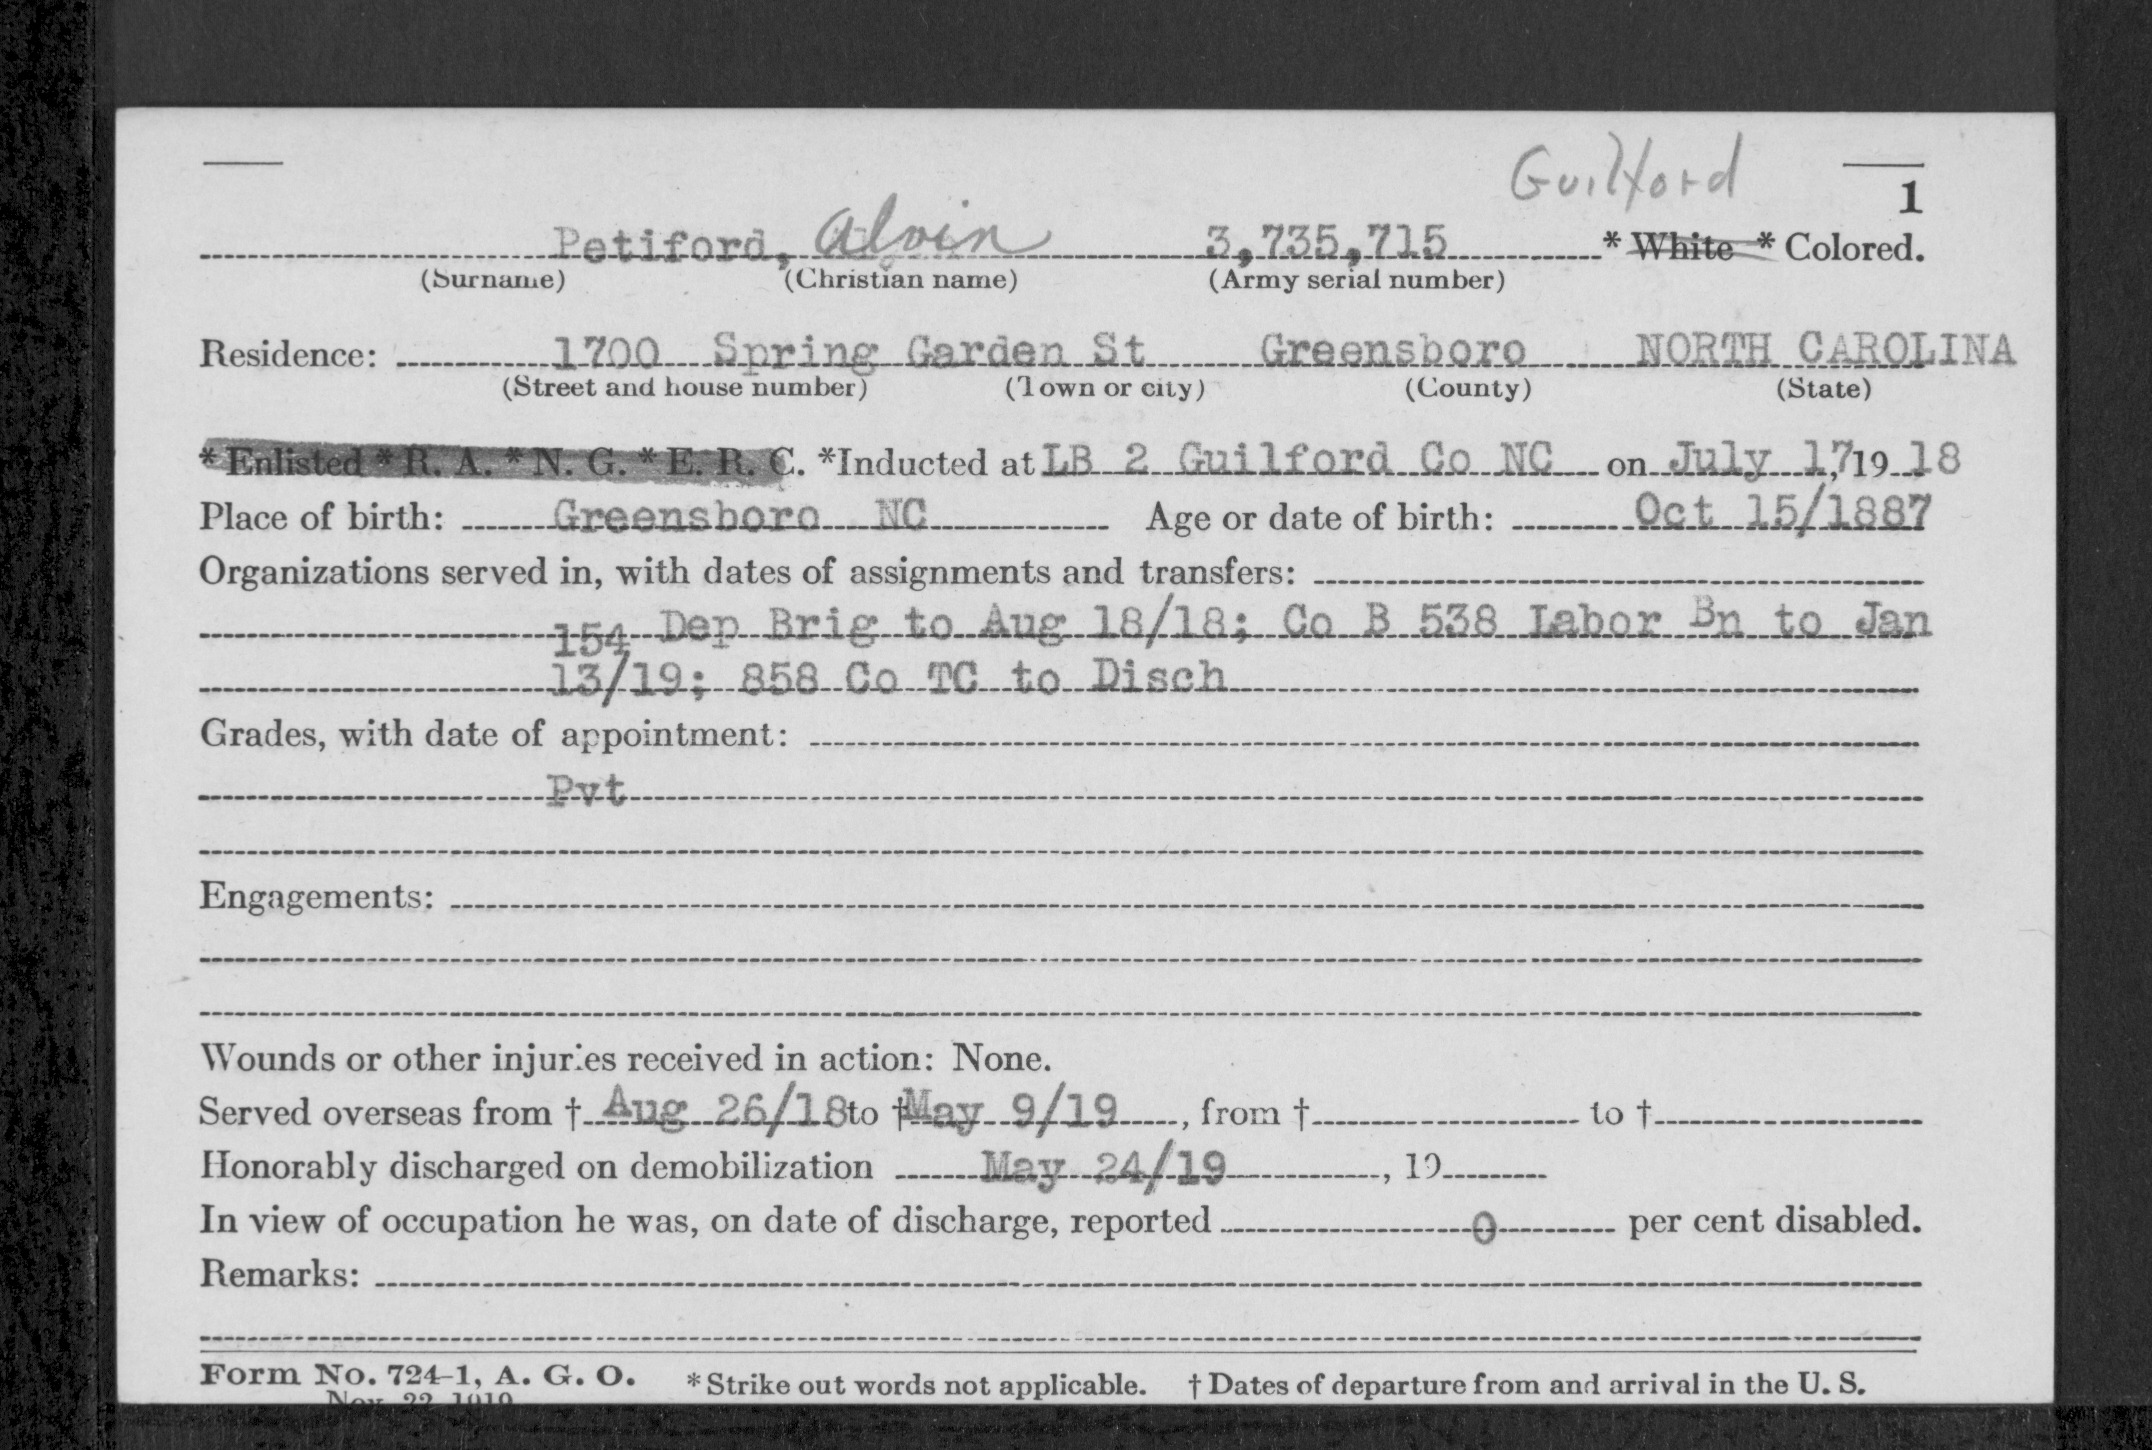 Guilford
1
Petiford, Alvin 3,735,715 * White * Colored.
(Surname) (Christian name) (Army serial number)
Residence: 1700 Spring Garden St Greensboro NORTH CAROLINA
(Street and house number) (Town or city) (County) (State)
* Enlisted * R. A. * N. G. * E. R. C. *Inducted at LB 2 Guilford Co NC on July 17, 19 18
Place of birth: Greensboro NC Age or date of birth: Oct 15/1887
Organizations served in, with dates of assignments and transfers:
154 Dep Brig to Aug 18/18; Co B 538 Labor Bn to Jan
13/19; 858 Co TC to Disch
Grades, with date of appointment:
Pvt
Engagements:
Wounds or other injuries received in action: None.
Served overseas from † Aug 26/18 to † May 9/19, from † to †
Honorably discharged on demobilization May 24/19, 19
In view of occupation he was, on date of discharge, reported 0 per cent disabled.
Remarks:
Form No. 724-1, A. G. O. * Strike out words not applicable. † Dates of departure from and arrival in the U. S.
Nov. 22, 1919